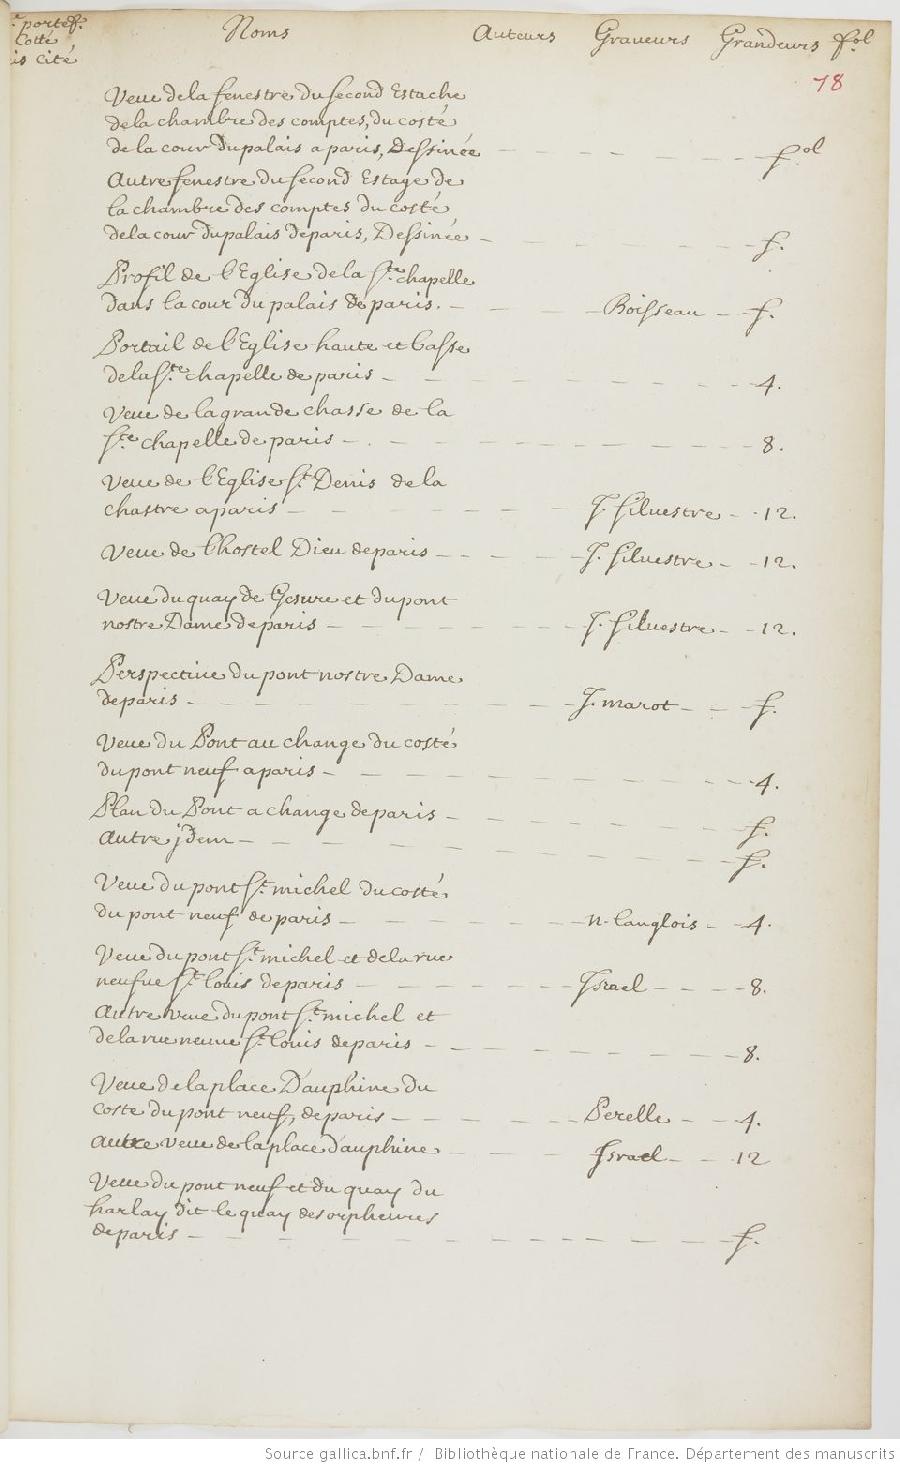 portef.
Cotté
is Cité
Noms Auteurs Graveurs Grandeurs fol
78
Veue de la fenestre du second Estache
de la chambre des comptes, du costé
de la cour du palais a paris, Dessinée fol
Autre fenestre du second Estage de
la chambre des comptes du costé
de la cour du palais de paris, Dessinée f.
Profil de l'Eglise de la Ste chapelle
dans la cour du palais de paris. Boisseau f.
Portail de l'Eglise haute et basse
de la Ste chapelle de paris 4.
Veue de la grande chasse de la
Ste chapelle de paris 8.
Veue de l'Eglise St Denis de la
chastre a paris J. Silvestre 12.
Veue de l'hostel Dieu de paris J. Silvestre 12.
Veue du quay de Gesure et du pont
nostre Dame de paris J. Silvestre 12.
Perspective du pont nostre Dame
de paris J. marot f.
Veue du Pont au change du costé
du pont neuf a paris 4.
Plan du Pont a change de paris f.
Autre jdem f.
Veue du pont St michel du costé
du pont neuf de paris n. langlois 4.
Veue du pont St michel et de la rue
neufue St louis de paris Israel 8.
Autre veue du pont St michel et
de la rue neuue St louis de paris 8.
Veue de la place Dauphine du
coste du pont neuf, de paris Perelle 4.
Autre veue de la place dauphine Israel 12
Veue du pont neuf et du quay du
harlay dit le quay des orpheures
de paris f.
Source gallica.bnf.fr / Bibliothèque nationale de France. Département des manuscrits